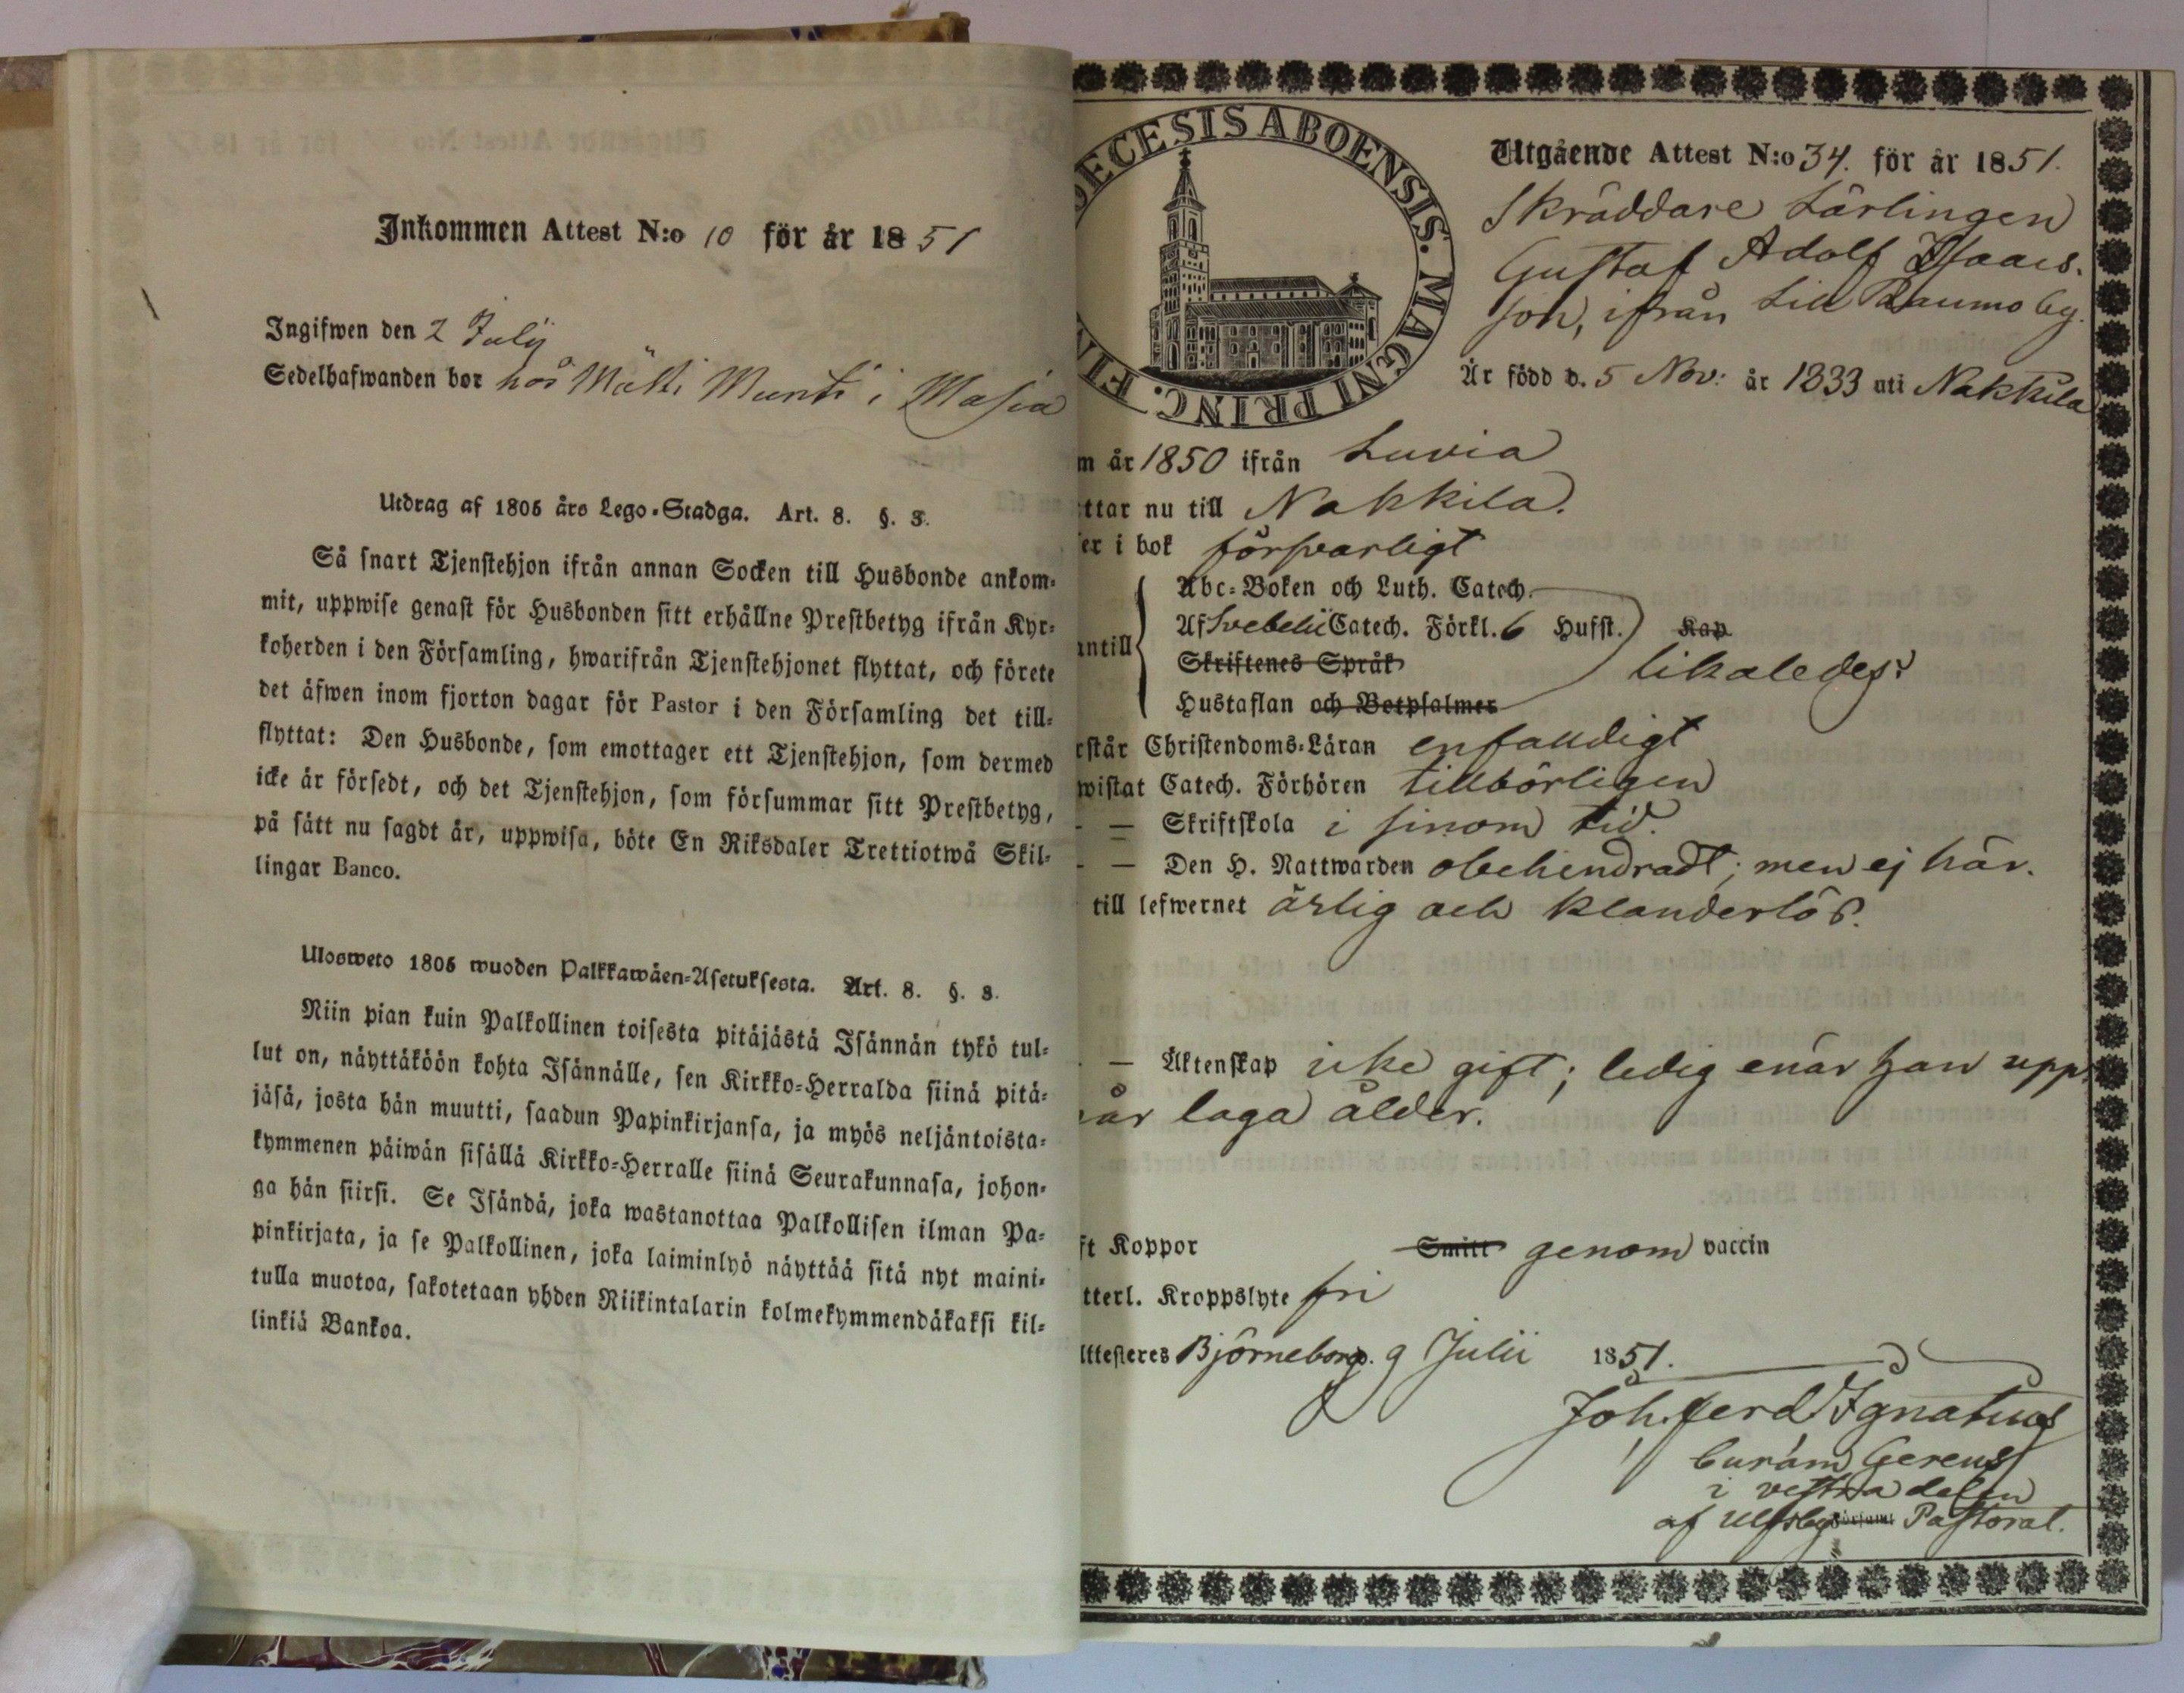 Inkommen Attest N:o 10 för år 1851
Ingifwen den 2 Julij
Sedelhafwanden bor hos Matti Munti i Masia
Utdrag af 1805 års Lego-Stadga. Art. 8. §. 3.
Så snart Tjenstehjon ifrån annan Socken till Husbonde ankom-
mit, uppwise genast för Husbonden sitt erhållne Prestbetyg ifrån Kyr-
koherden i den Församling, hwarifrån Tjenstehjonet flyttat, och förete
det äfwen inom fjorton dagar för Pastor i den Församling det till-
flyttat: Den Husbonde, som emottager ett Tjenstehjon, som dermed
icke är försedt, och det Tjenstehjon, som försummar sitt Prestbetyg,
på sätt nu sagdt är, uppwisa, böte En Riksdaler Trettiotwå Skil-
lingar Banco.
Ulosweto 1805 wuoden Palkkawäen-Asetuksesta. Art. 8. §. 3.
Niin pian kuin Palkollinen toisesta pitäjästä Isännän tykö tul-
lut on, näyttäköön kohta Isännälle, sen Kirkko-Herralda siinä pitä-
jäsä, josta hän muutti, saadun Papinkirjansa, ja myös neljäntoista-
kymmenen päiwän sisällä Kirkko-Herralle siinä Seurakunnasa, johon-
ga hän siirsi. Se Isändä, joka wastanottaa Palkollisen ilman Pa-
pinkirjata, ja se Palkollinen, joka laiminlyö näyttää sitä nyt maini-
tulla muotoa, sakotetaan yhden Riikintalarin kolmekymmendäkaksi kil-
linkiä Bankoa.
ECESIS ABOENSIS. MAGNI PRINC. FIN
Utgående Attest N:o 34. för år 1851.
Skräddare Lärlingen
Gustaf Adolf Isaacs-
son, ifrån Lill Raumo by.
Är född d. 5 Nov: år 1833 uti Nakkila
m år 1850 ifrån Luvia
ttar nu till Nakkila.
er i bok försvarligt
Abc-Boken och Luth. Catech.
ntill Af Svebelii Catech. Förkl. 6 Hufst. Kap
Skriftenes Språk likaledes.
Hustaflan och Botpsalmer
rstår Christendoms-Läran enfaldigt
wistat Catech. Förhören tillbörligen
— Skriftskola i sinom tid.
— Den H. Nattwarden obehindradt; men ej här.
till lefwernet ärlig och klanderlös.
— Äktenskap icke gift; ledig enär han upp-
når laga ålder.
ft Koppor Smitt genom vaccin
tterl. Kroppslyte fri
ttesteres Björneborg. 9 Julii 1851.
Joh. Ferd Ignatius
Curam Gerens
i vestra delen
af Ulfsby Pastorat.